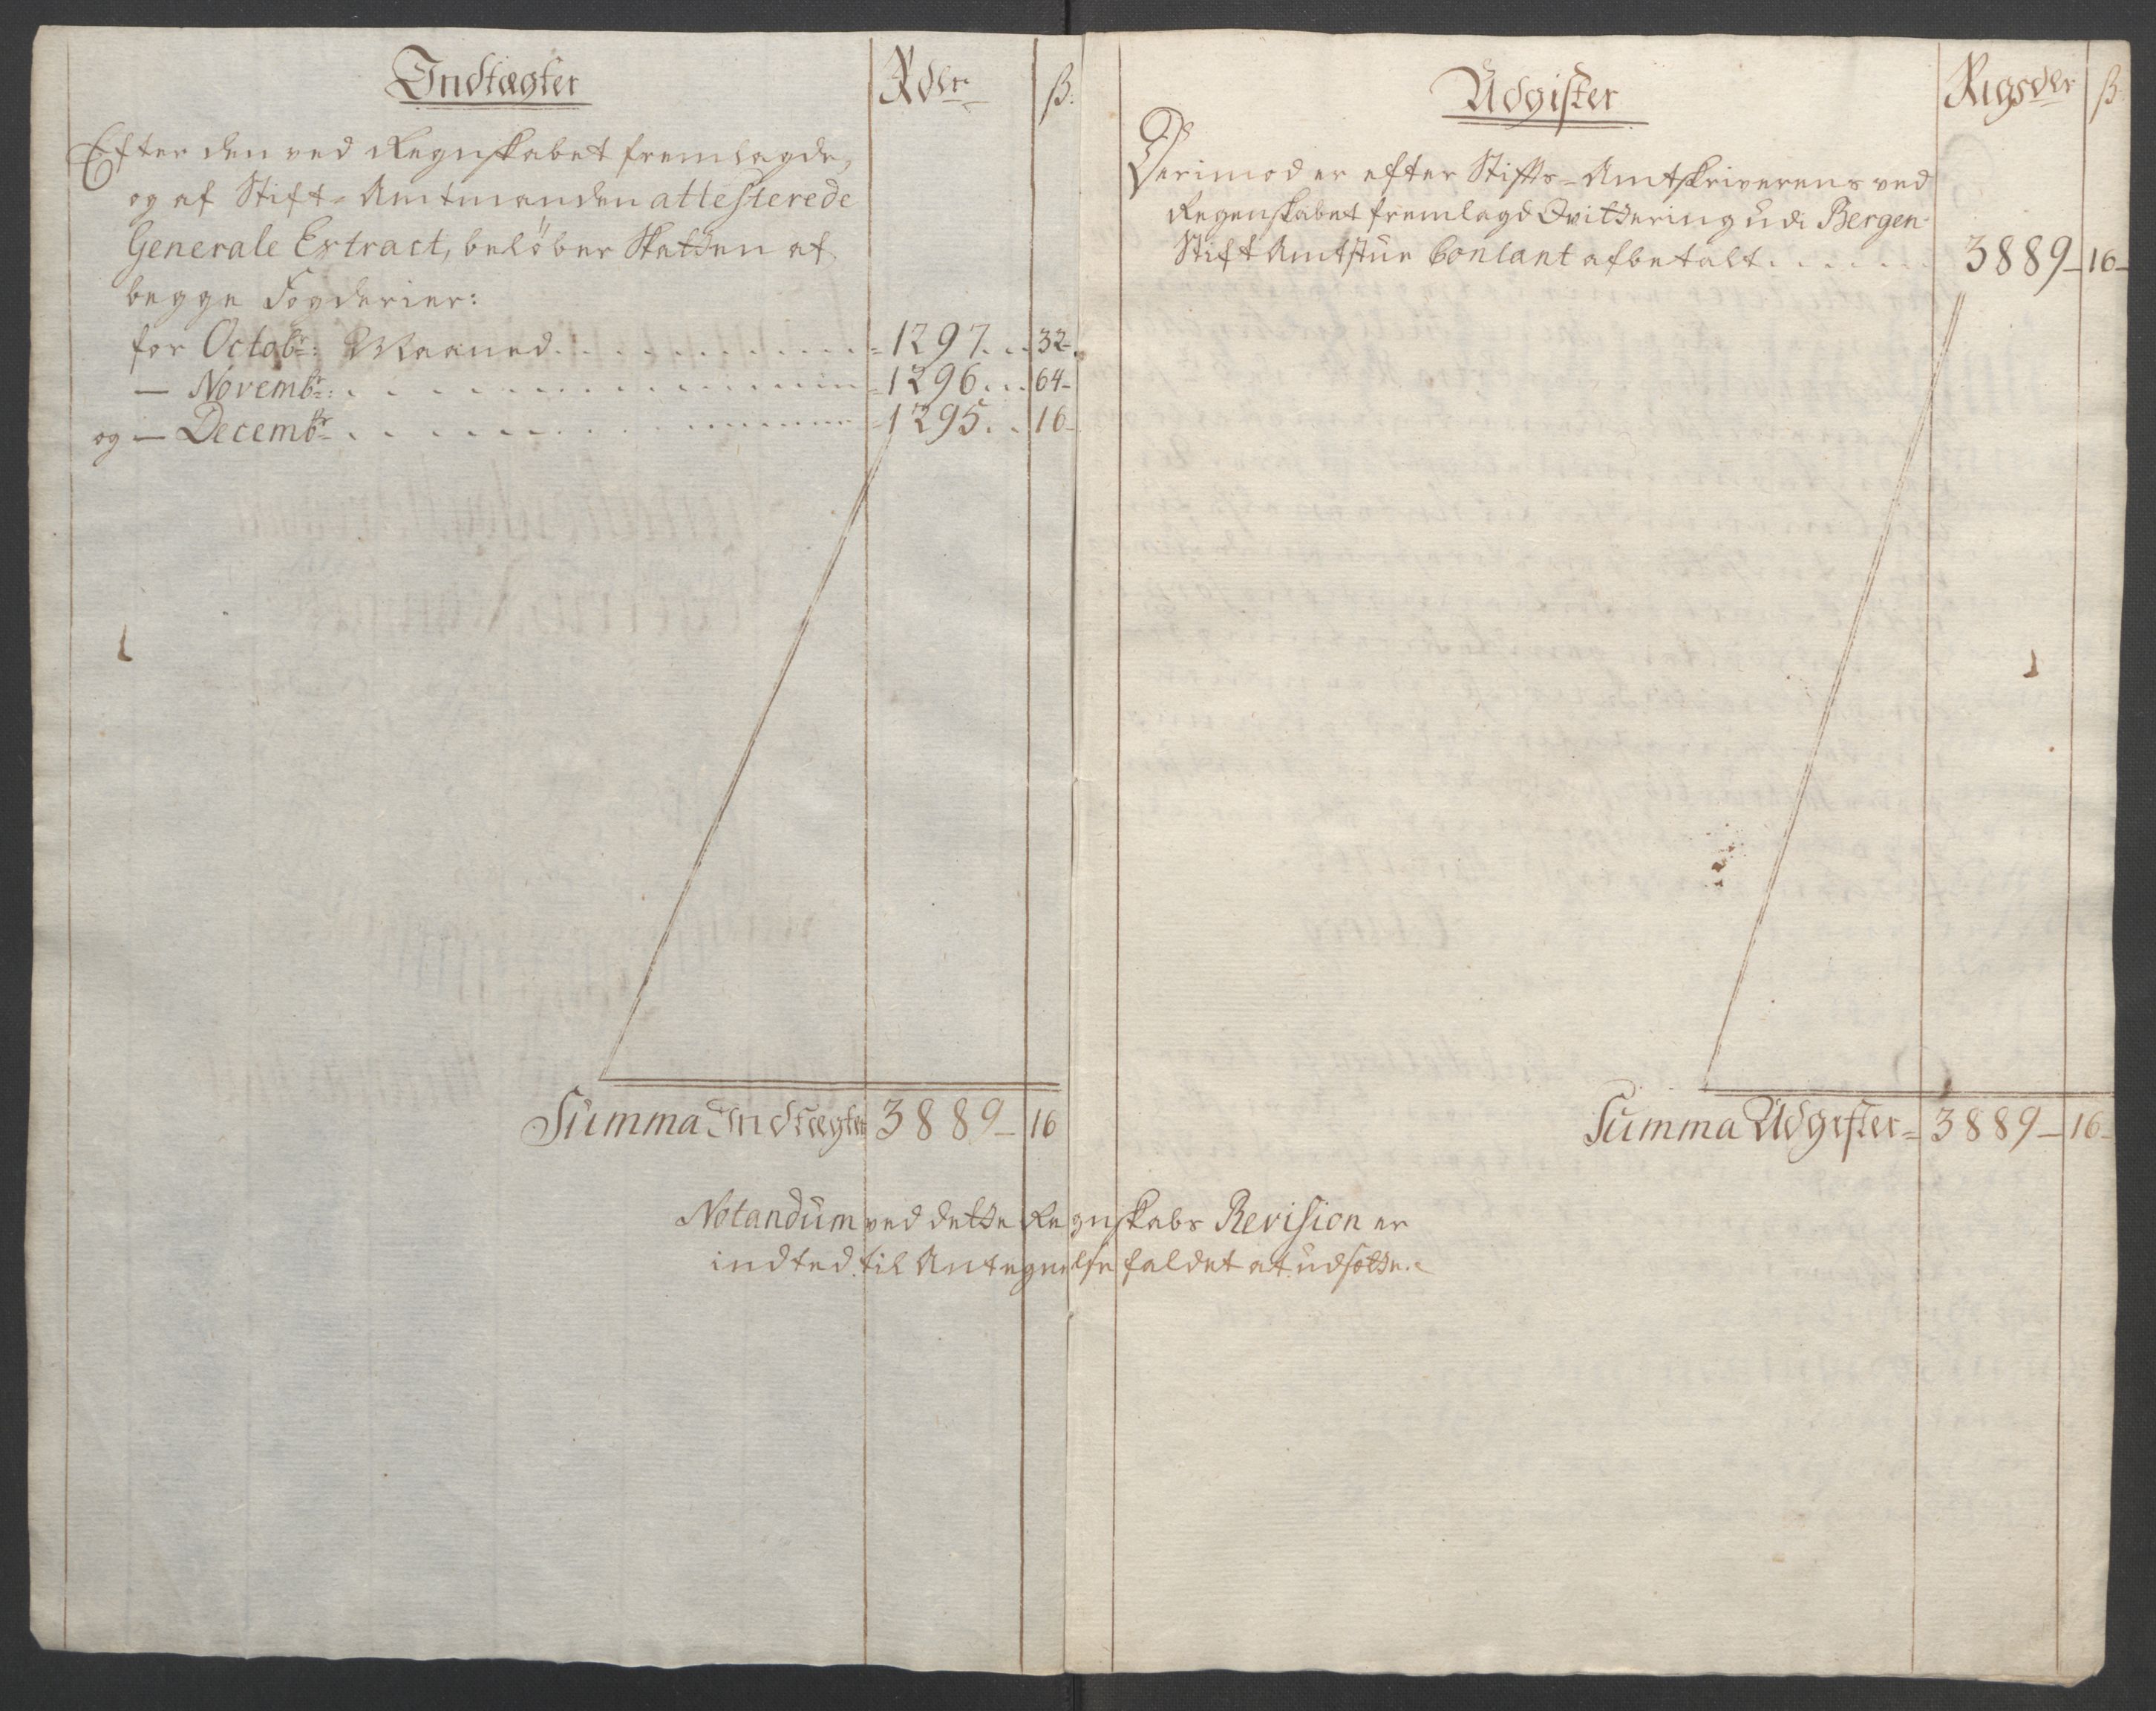 Indtægter Rdlr ß.
Efter den ved Regnskabet fremlagde,
og af Stift-Amtmanden attesterede
Generale Extract, beløber Skatten af
begge Fogderier:
for Octobr: Maaned . . . . . . . . . . . 1297 . . 32-
— Novembr: . . . . . . . . . . . 1296 . . 64-
og — Decembr . . . . . . . . . . . 1295 . . 16-
Summa Indtægter 3889 - 16
Udgifter Rigsdlr ß
Derimod er efter Stifts-Amtskriverens ved
Regenskabet fremlagd Qvittering udi Bergen-
Stift Amtstue Contant afbetalt . . . . . . 3889 - 16-
Summa Udgifter = 3889 - 16-
Notandum ved dette Regnskabs Revision er
indted til Antegnelse faldet at udsætte.